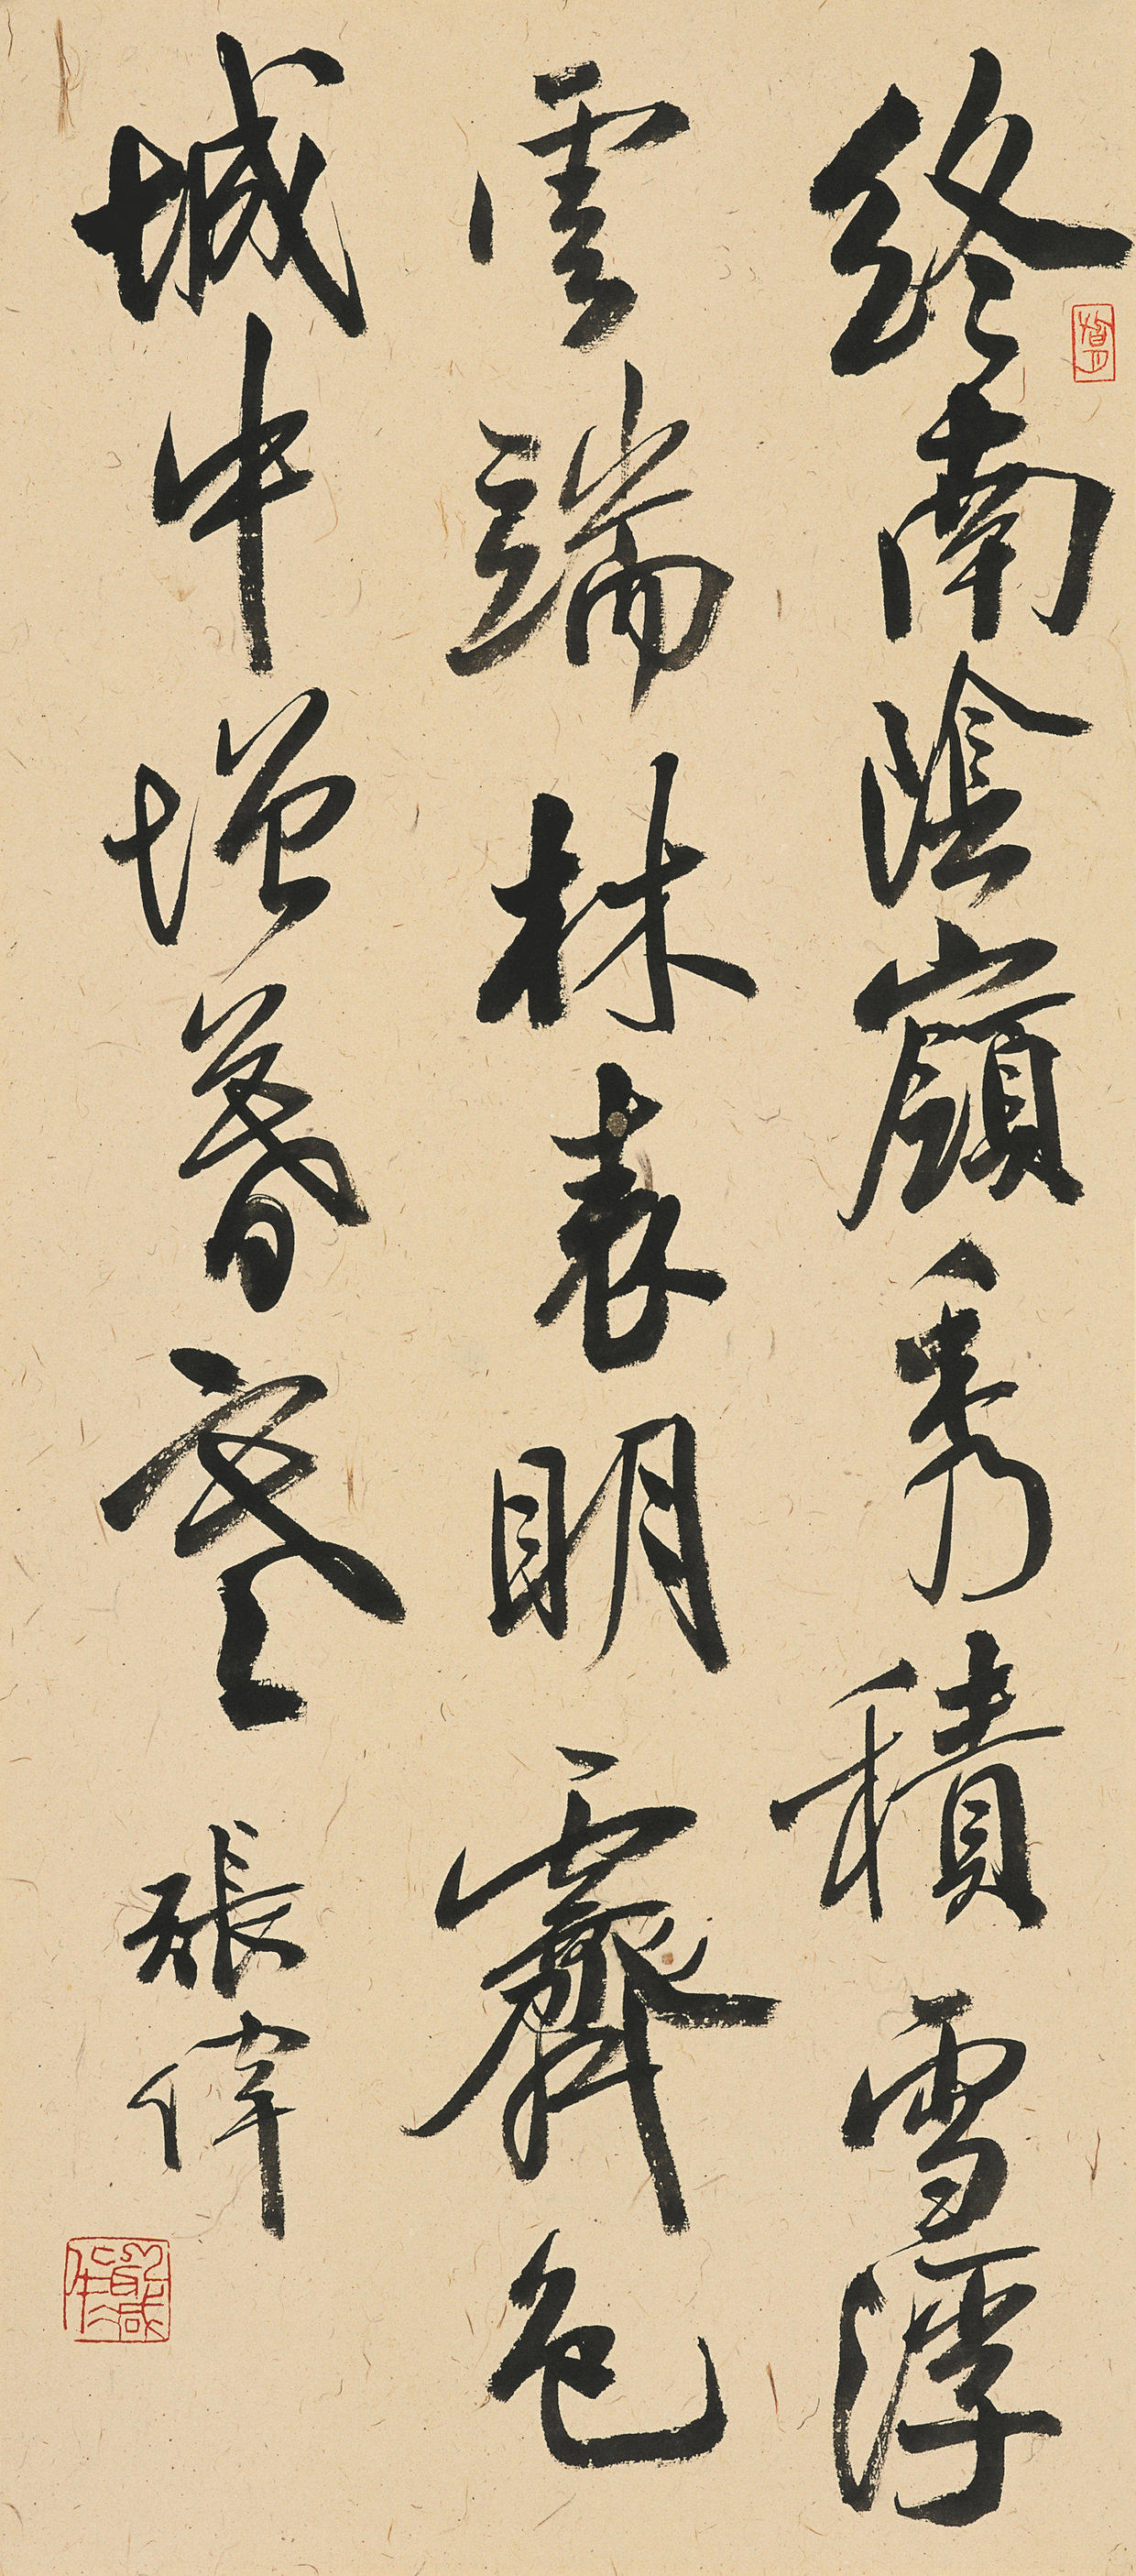 終南陰嶺秀積雪浮
雲端林表明霽色
城中增暮寒 張偉